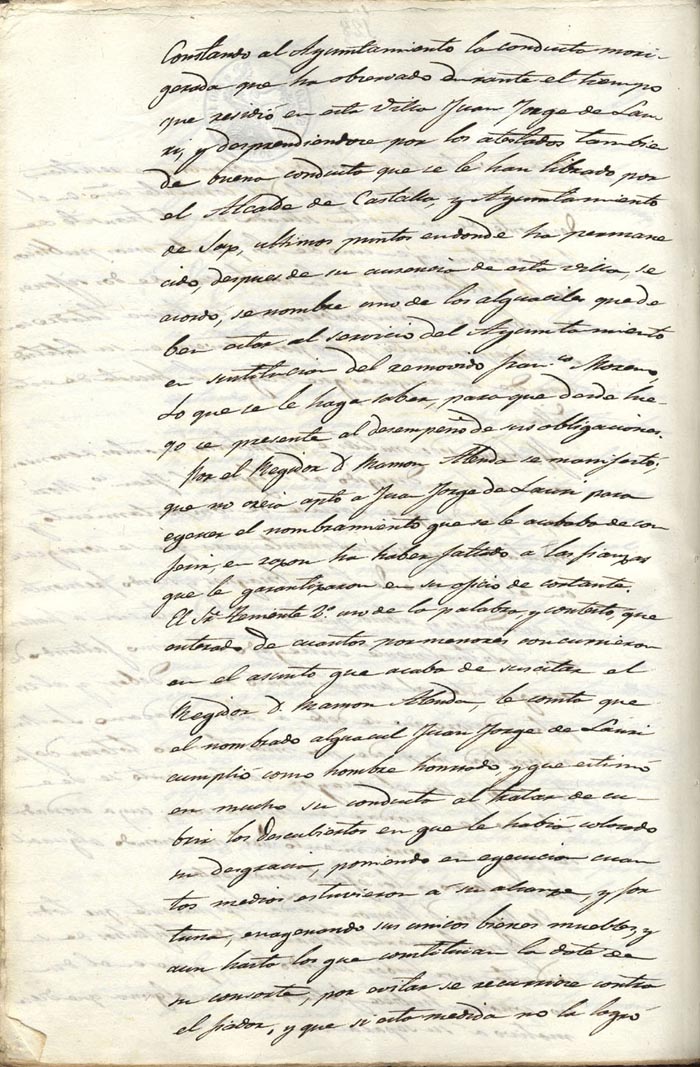 Constando al Ayuntamiento la conducta mori-
gerada que ha observado durante el tiempo
que residió en esta villa Juan Jorge de Lau-
ri, y desprendiendose por los atestados tambien
de buena conducta que se le han librado por
el Alcalde de Castalla y Ayuntamiento
de Sax, ultimos puntos en donde ha permane
cido, despues de su ausencia de esta villa, se
acordo, se nombre uno de los alguaciles que de
ben estar al servicio del Ayuntamiento
en sustitucion del removido Fran.co Moreno,
Lo que se le haga saber, para que desde lue-
go se presente al desempeño de sus obligaciones.
Por el Regidor D. Ramon Menda se manifestó;
que no creia apto a Juan Jorge de Lauri para
egercer el nombramiento que se le acababa de con
ferir, en razon ha haber faltado a las fianzas
que le garantizaron en su oficio de cortante.
El Sr. Teniente 2º uso de la palabra, y contestó, que
enterado de cuantos pormenores concurrieron
en el asunto que acaba de suscitar el
Regidor D. Ramon Menda, le consta que
el nombrado alguacil Juan Jorge de Lauri
cumplió como hombre honrado, y que estimó
en mucho su conducta al tratar de cu-
brir los descubiertos en que le habia colocado
su desgracia, poniendo en egecucion cuan
tos medios estuvieron a su alcance, y for
tuna, enagenando sus unicos bienes muebles, y
aun hasta los que constituian la dote de
su consorte, por evitar se recurriere contra
el fiador, y que si esta medida no la logró